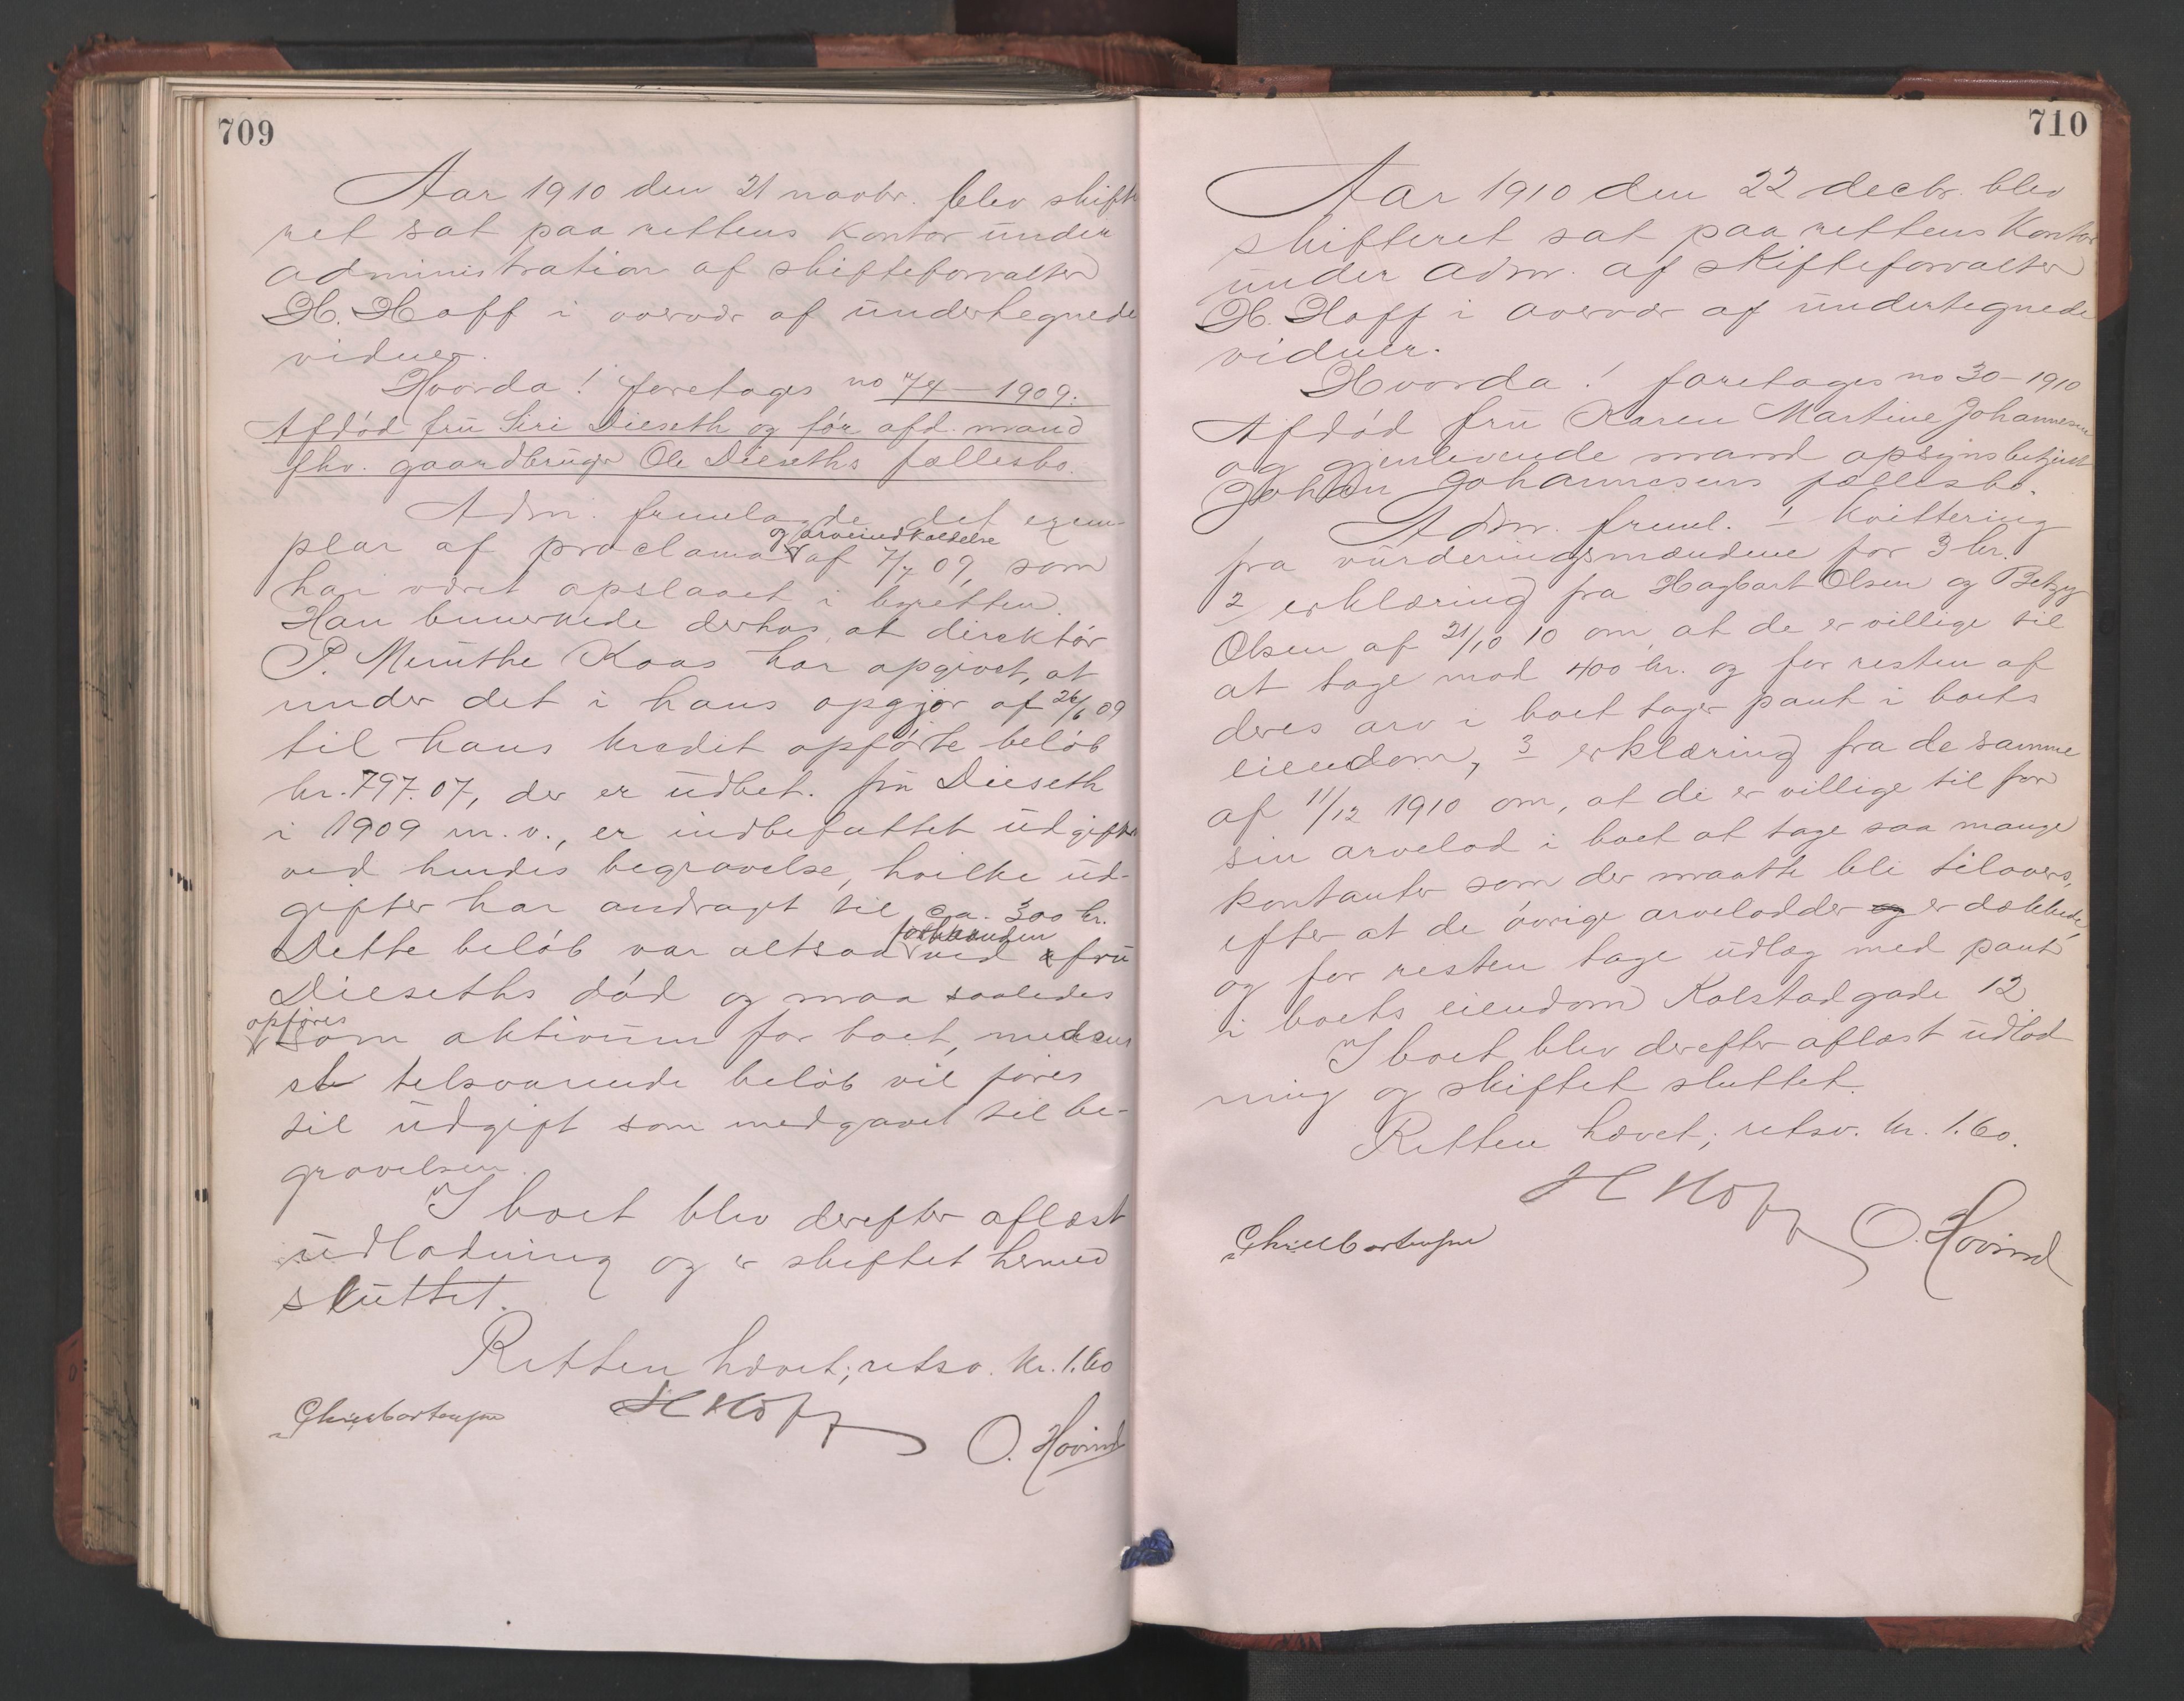 709
Aar 1910 den 21 novbr. blev skifte
ret sat paa rettens kontor under
administration af skifteforvalter
H. Hoff i overvær af undertegnede
vidner.
Hvorda! foretages no 74 – 1909.
Afdød fru Siri Dieseth og før afd. mand
fhv. gaardbruger Ole Dieseths fællesbo.
Adm. fremlagde det exem-
og arveindkaldelse
plar af proclama af 7/7 09, som
har været opslaaet i byretten.
Han bemerkede derhos, at direktør
P. Munthe Kaas har opgivet, at
under det i hans opgjør af 26/6 09
til hans kredit opførte beløb
kr. 797.07, der er udbet. fru Dieseth
i 1909 m.v., er indbefattet udgifter
ved hendes begravelse, hvilke ud-
gifter har andraget til ca. 300 kr.
forhaanden
Dette beløb var altsaa ved fru
Dieseths død og maa saaledes
opføres
som aktivum for boet, medens
et tilsvarende beløb vil føres
til udgift som medgaaet til be-
gravelsen.
I boet blev derefter aflæst
udlodning og er skiftet hermed
sluttet.
Retten hævet; retsv. kr. 1.60
H Hoff
O. Hovind
710
Aar 1910 den 22 decbr. blev
skifteret sat paa rettens kontor
under adm. af skifteforvalter
H. Hoff i overvær af undertegnede
vidner.
Hvorda! foretages no 30 – 1910
Afdød fru Karen Martine Johannesen
og gjenlevende mand opsynsbetjent
Johan Johannesens fællesbo.
Adm. freml. 1 kvittering
fra vurderingsmændene for 3 kr.
2 erklæring fra Hagbart Olsen og Betzy
Olsen af 21/10 10 om, at de er villige til
at tage mod 400 kr. og for resten af
deres arv i boet tager pant i boets
eiendom, 3 erklæring fra de samme
af 11/12 1910 om, at de er villige til for
sin arvelod i boet at tage saa mange
kontanter som der maatte bli tilovers,
efter at de øvrige arvelodder er dækkede,
og for resten tage udlæg med pant
i boets eiendom Kolstadgade 12
I boet blev derefter aflæst udlod
ning og skiftet sluttet.
Retten hævet; retsv. kr. 1.60.
H Hoff
O. Hovind